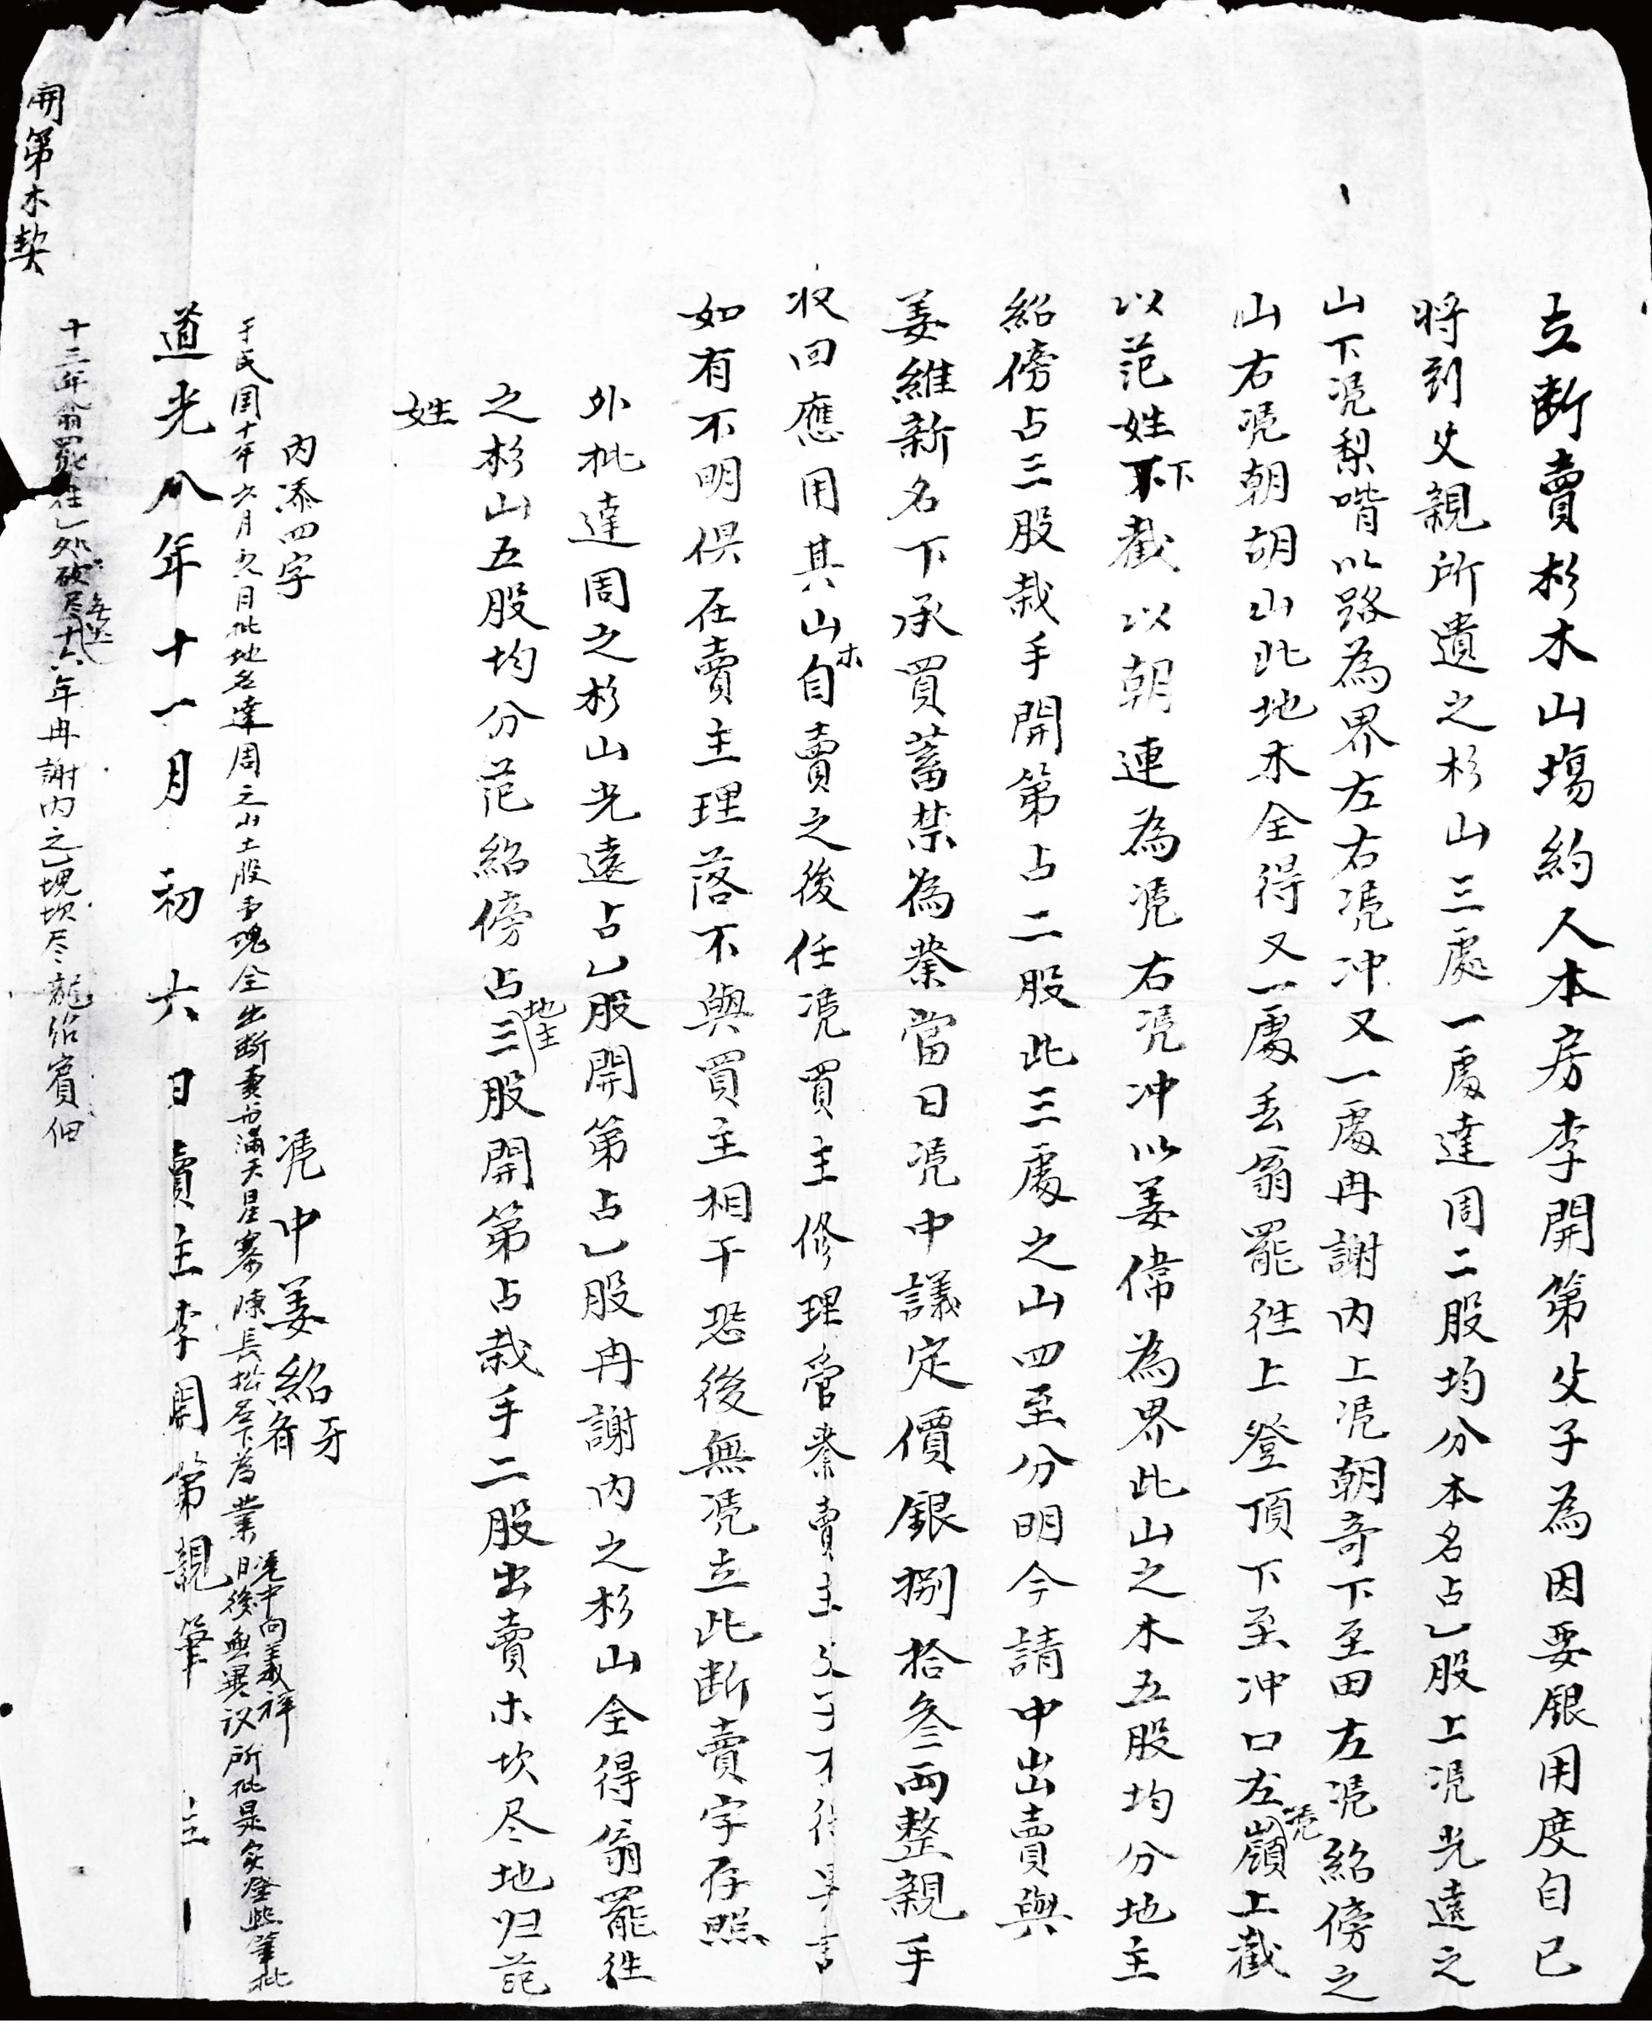 立断賣杉木山塲約人本房李開第父子為因要銀用度自已
將到父親所遺之杉山三處一處達周二股均分本名占乚股上凴光遠之
山下凴梨嘴以路為界左右凴冲又一處冉謝内上凴朝奇下至田左凴紹傍之
山右凴朝胡山此地木全得又一處丢翁罷徃上登頂下至冲口左凴嶺上截
以范姓下截以朝連為凴右凴冲以姜偉為界此山之木五股均分地主
紹傍占三股栽手開第占二股此三處之山四至分明今請中出賣與
姜維新名下承買蓄禁為業當日凴中議定價銀捌拾叁両整親手
收回應用其山木自賣之後任凴買主修理管業賣主父子不得異言
如有不明俱在賣主理落不與買主相干恐後無凴立此断賣字存照
外批達周之杉山光遠占乚股開第占乚股冉謝内之杉山全得翁罷徃
之杉山五股均分范紹傍占地主三股開第占栽手二股出賣木坎尽地归范
姓
内添四字
凴中姜紹牙
于民国十年六月 日批地名達周之山土股 塊全出断賣与滿天星寨陳長松名下為業日後無異议所批是实 此筆批
凴中向義祥
道光八年十一月初六日賣主李開第親筆 立
十三年翁罷徃乚处砍尽 十六年冉謝内之乚塊坎尽龍紹賓佃
開第木契